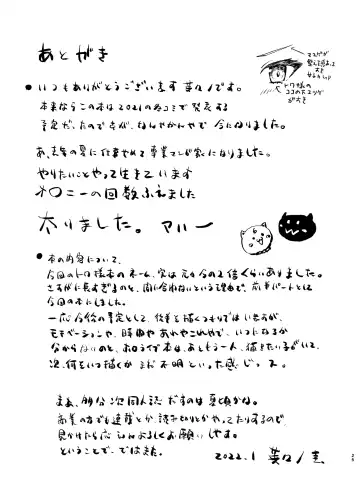 あとがき
マユゲが
トワ様の
ココのハネッケ
がすき
●いつもありがとうございます葵々ノ圭です。
本来ならこの本は2021の冬コミで発表する
予定だったのですが、なんやかんやで今になりました。
あ、去年の夏に仕事やめて専業マンガ家になりました。
やりたいことやって生きています
オ〇ニーの回数ふえました
太りました。アハー
●本の内容について、
今回のトワ様本のネーム、実は元々今の2倍くらいありました。
さすがに長すぎるのと、間に合わないという理由で、前半パートとして
今回の本にしました。
一応今後の予定として、後半を描くつもりではいますが、
モチベーションや、時間やあれやこれやで、いつになるか
分からないのと、ホロライブ本は、あともう一人、描きたい子がいて、
次、何をいつ描くかまだ不明といった感じっス。
まぁ、多分次同人誌だすのは夏頃かな。
商業の方でも連載とか読み切りとかやってたりするので、
見かけたら応援よろしくお願いします。
ということで、ではまた。
2022.1 葵々ノ圭